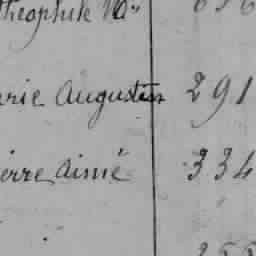 Théophile
arie Augustin 291
ierre aimé 334